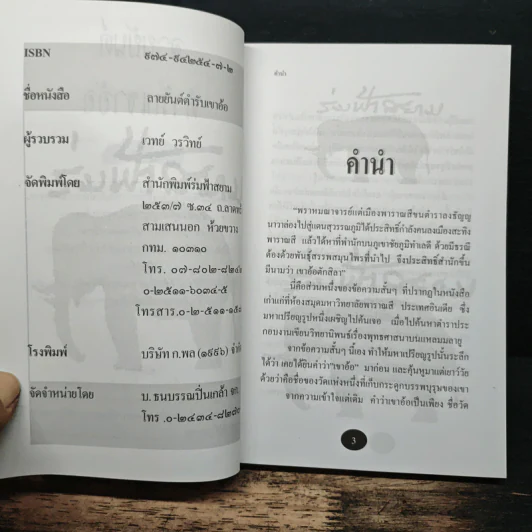 ISBN ๙๗๔-๙๔๒๕๔-๗-๒
ชื่อหนังสือ ลายยันต์ตำรับเขาอ้อ
ผู้รวบรวม เวทย์ วรวิทย์
จัดพิมพ์โดย สำนักพิมพ์ร่มฟ้าสยาม
๒๕๓/๗ ซ.๓๔ ถ.ลาดพร้าว
สามเสนนอก ห้วยขวาง
กทม. ๑๐๓๑๐
โทร. ๐๗-๘๐๒-๘๒๔
๐-๒๕๑๑-๖๐๓๔-๕
โทรสาร.๐-๒-๕๑๑-๑๕
โรงพิมพ์ บริษัท ก.พล (๑๙๙๖) จำกัด
จัดจำหน่ายโดย บ. ธนบรรณปิ่นเกล้า จก.
โทร .๐-๒๔๓๔-๘๒๗
คำนำ
ร่มฟ้าสยาม
คำนำ
"พราหมณาจารย์แต่เมืองพาราณสีขนตำราลงธัญญ
นาวาล่องไปสู่แดนสุวรรณภูมิได้ประสิทธิ์กำลังคนลงเมืองสะทิง
พาราณสี แล้วได้หาที่พำนักบนภูเขาชัยภูมิทำเลดี ด้วยมีธรณี
ต้องด้วยพันธุ์สรรพสมุนไพรที่นำไป จึงประสิทธิ์สำนักขึ้น
มีนามว่า เขาอ้อตักสิลา"
นี่คือส่วนหนึ่งของข้อความสั้นๆ ที่ปรากฏในหนังสือ
เก่าแก่ที่ห้องสมุดมหาวิทยาลัยพาราณสี ประเทศอินเดีย ซึ่ง
มหาเปรียญรูปหนึ่งเผชิญไปค้นเจอ เมื่อไปค้นหาตำราประ
กอบงานเขียนวิทยานิพนธ์เรื่องพุทธศาสนาบนแหลมมลายู
จากข้อความสั้นๆ นี้เอง ทำให้มหาเปรียญรูปนั้นระลึก
ได้ว่า เคยได้ยินคำว่า"เขาอ้อ" มาก่อน และคุ้นหูมาแต่เยาว์วัย
ด้วยว่าคือชื่อของวัดแห่งหนึ่งที่เก็บกระดูกบรรพบุรุษของเขา
จากความเข้าใจแต่เดิม คำว่าเขาอ้อเป็นเพียง ชื่อวัด
3